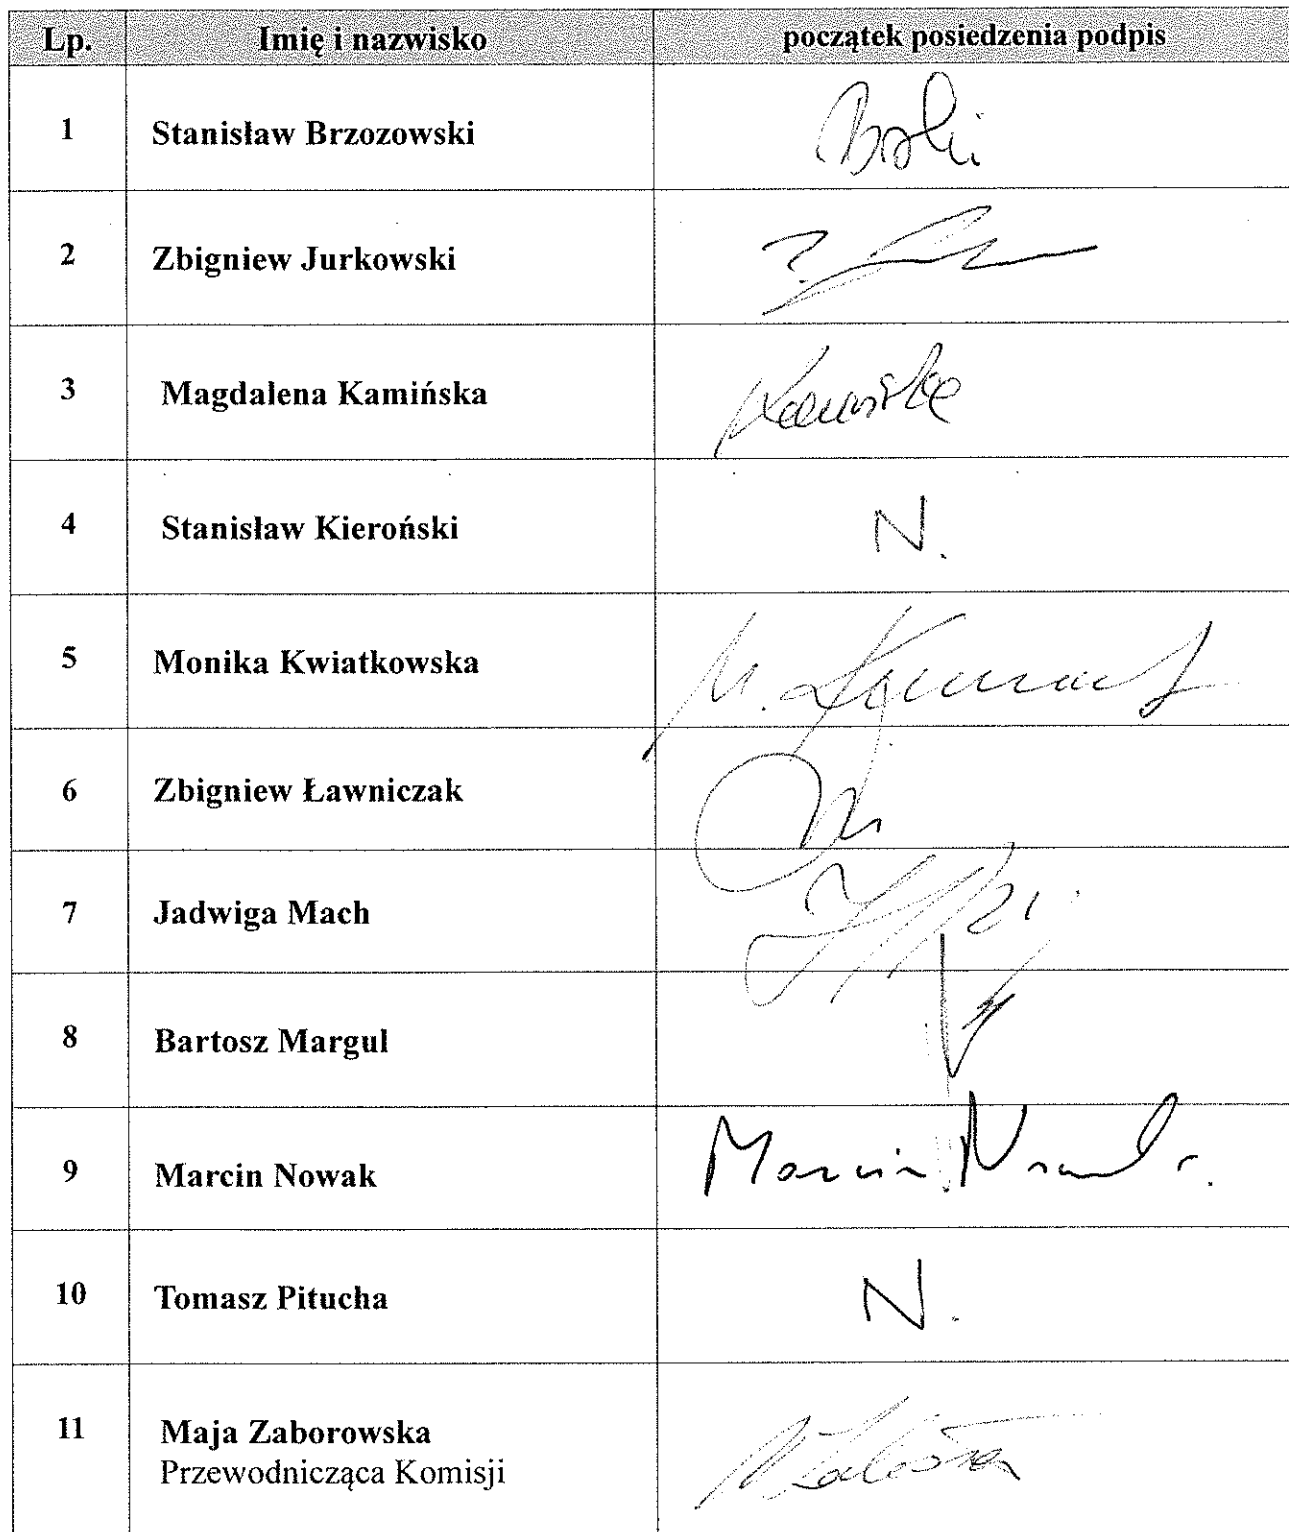 Lp. Imię i nazwisko początek posiedzenia podpis
1 Stanisław Brzozowski
2 Zbigniew Jurkowski
3 Magdalena Kamińska
4 Stanisław Kieroński N.
5 Monika Kwiatkowska
6 Zbigniew Ławniczak
7 Jadwiga Mach
8 Bartosz Margul
9 Marcin Nowak Marcin Nowak
10 Tomasz Pitucha N.
11 Maja Zaborowska
Przewodnicząca Komisji